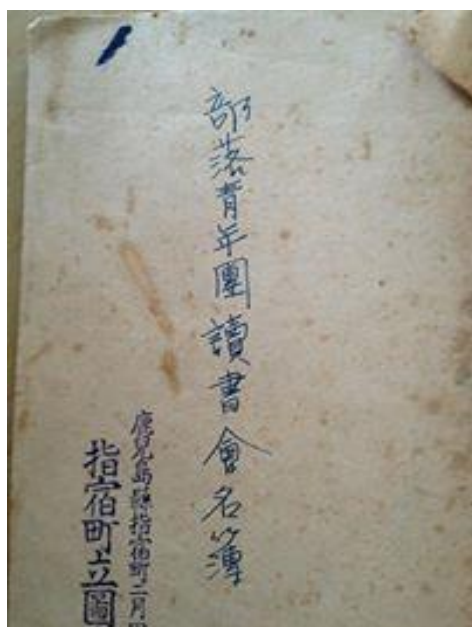 部落青年團讀書會名簿
鹿児島縣指宿町二月田
指宿町立圖